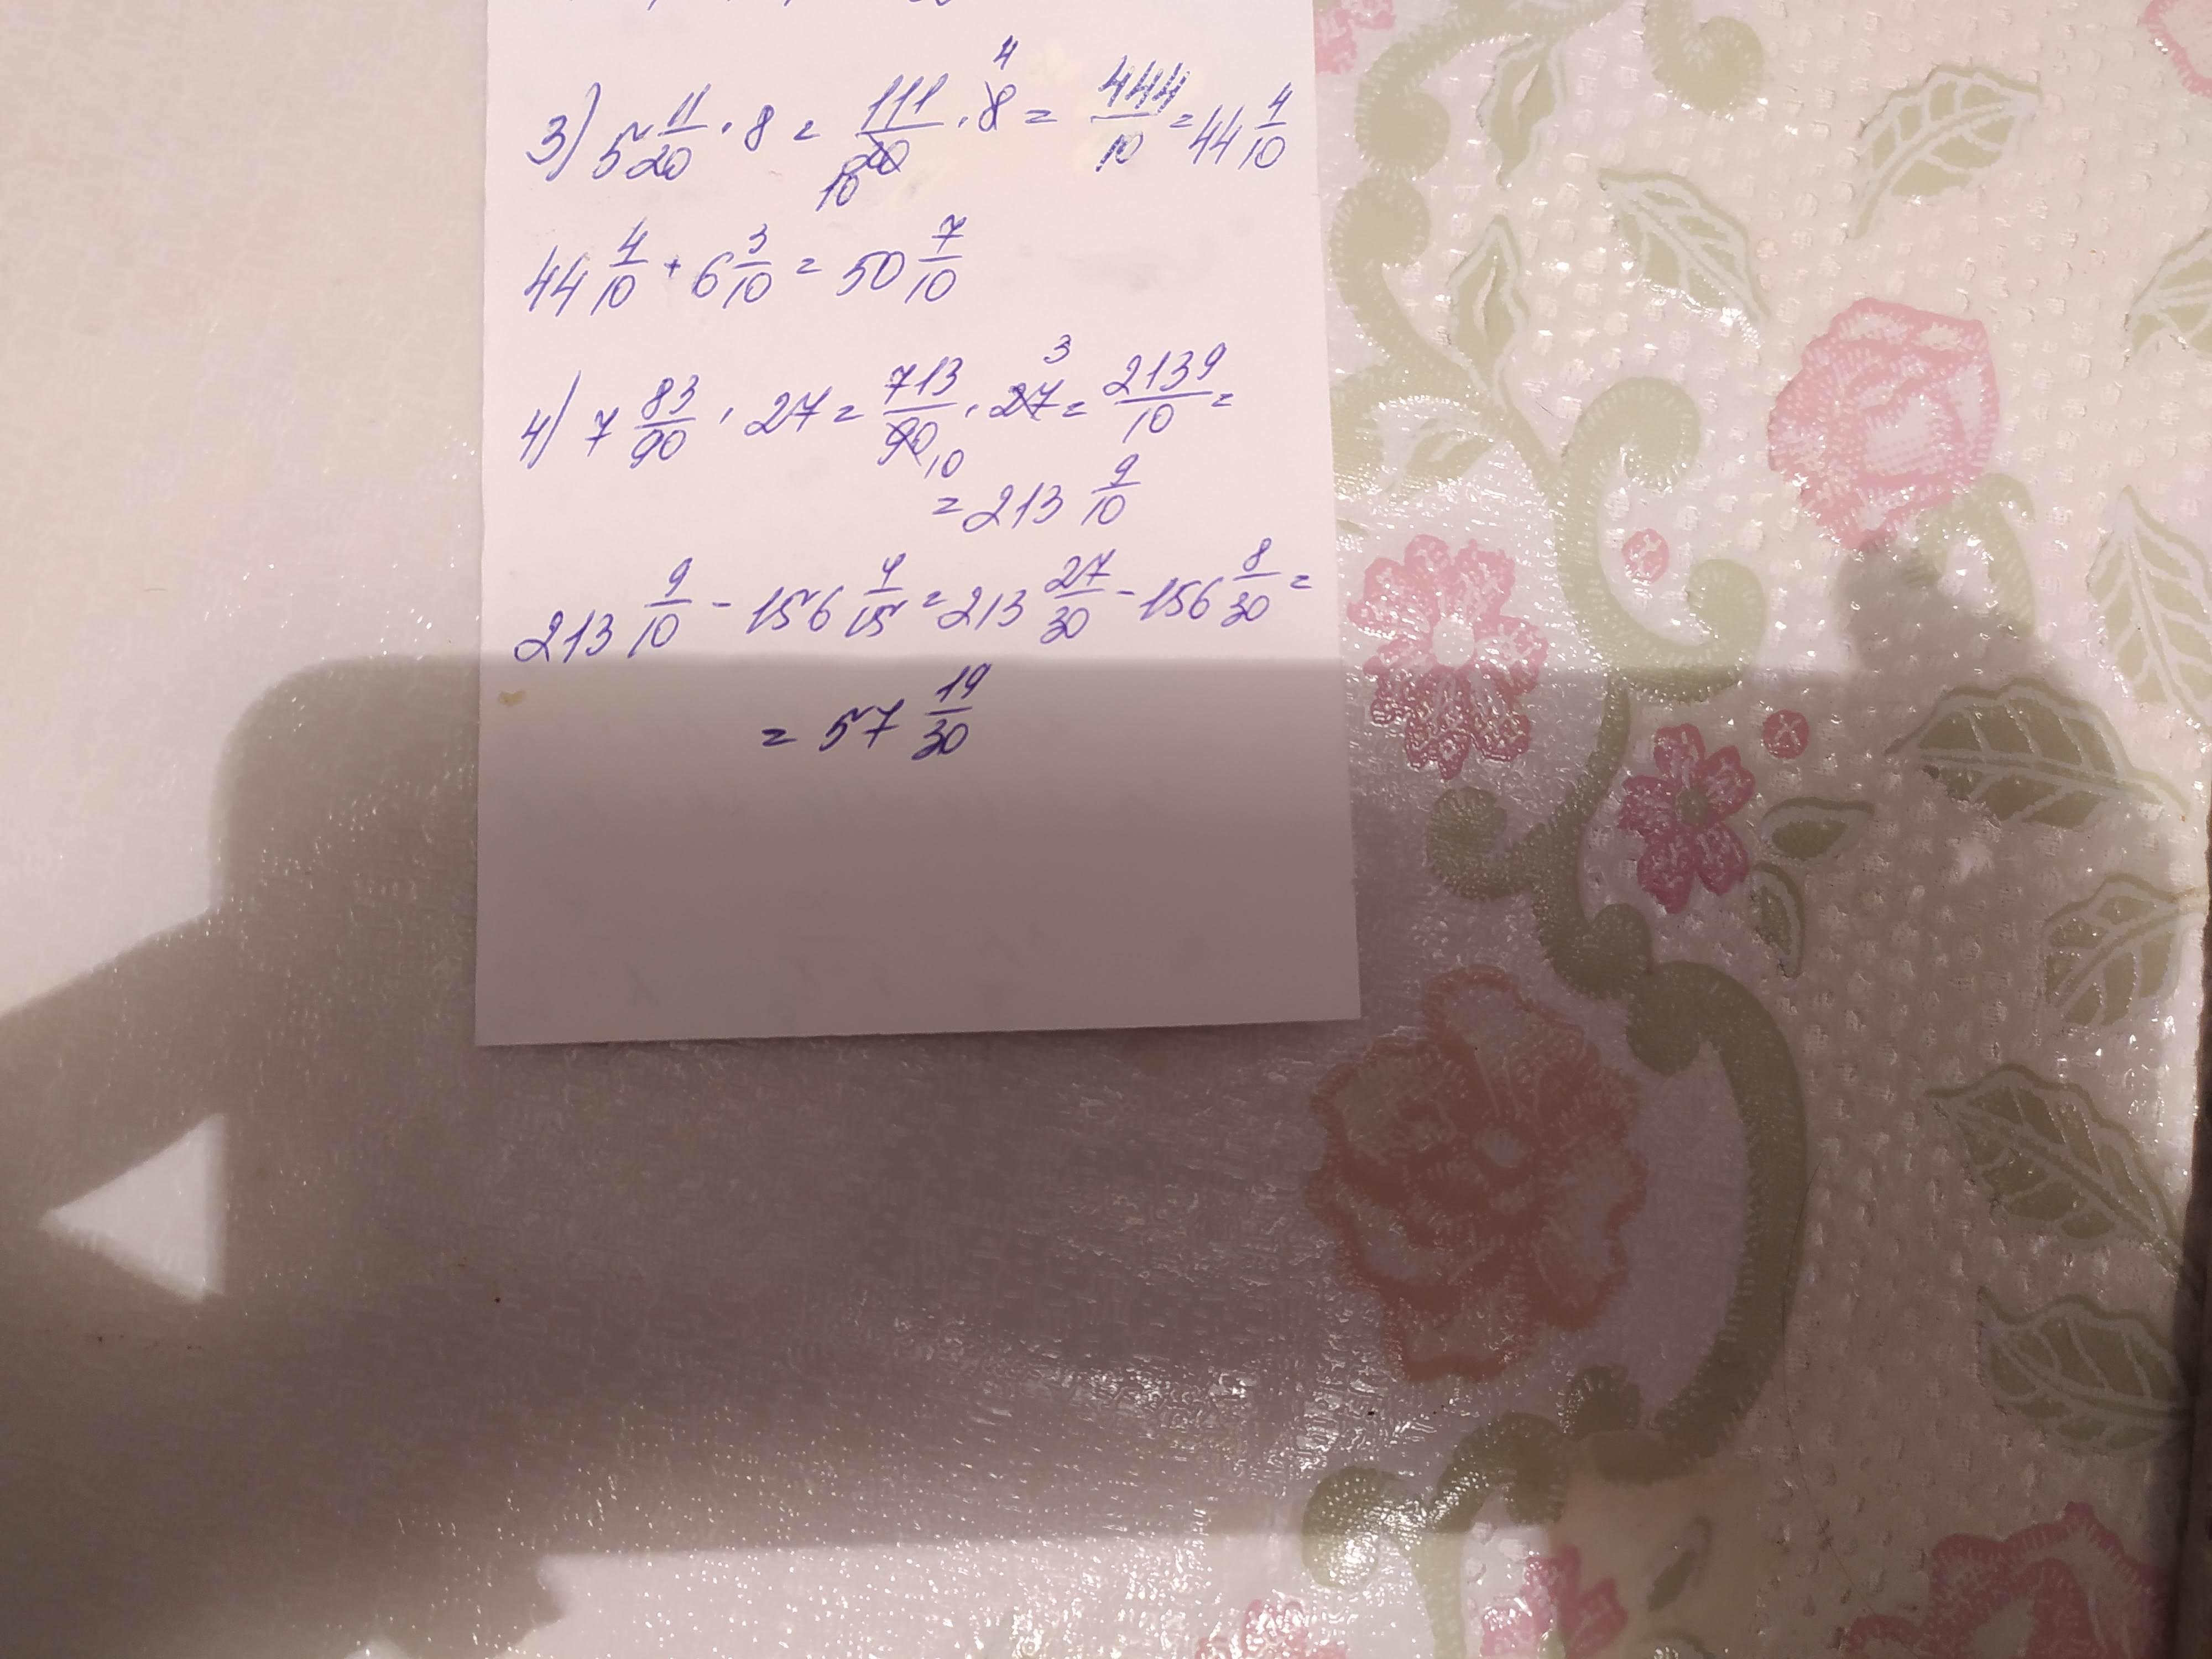 3) 5 11/20 · 8 = 111/20 10 · 8 4 = 444/10 = 44 4/10
44 4/10 + 6 3/10 = 50 7/10
4) 7 83/90 · 27 = 713/90 10 · 27 3 = 2139/10 =
= 213 9/10
213 9/10 - 156 4/15 = 213 27/30 - 156 8/30 =
= 57 19/30